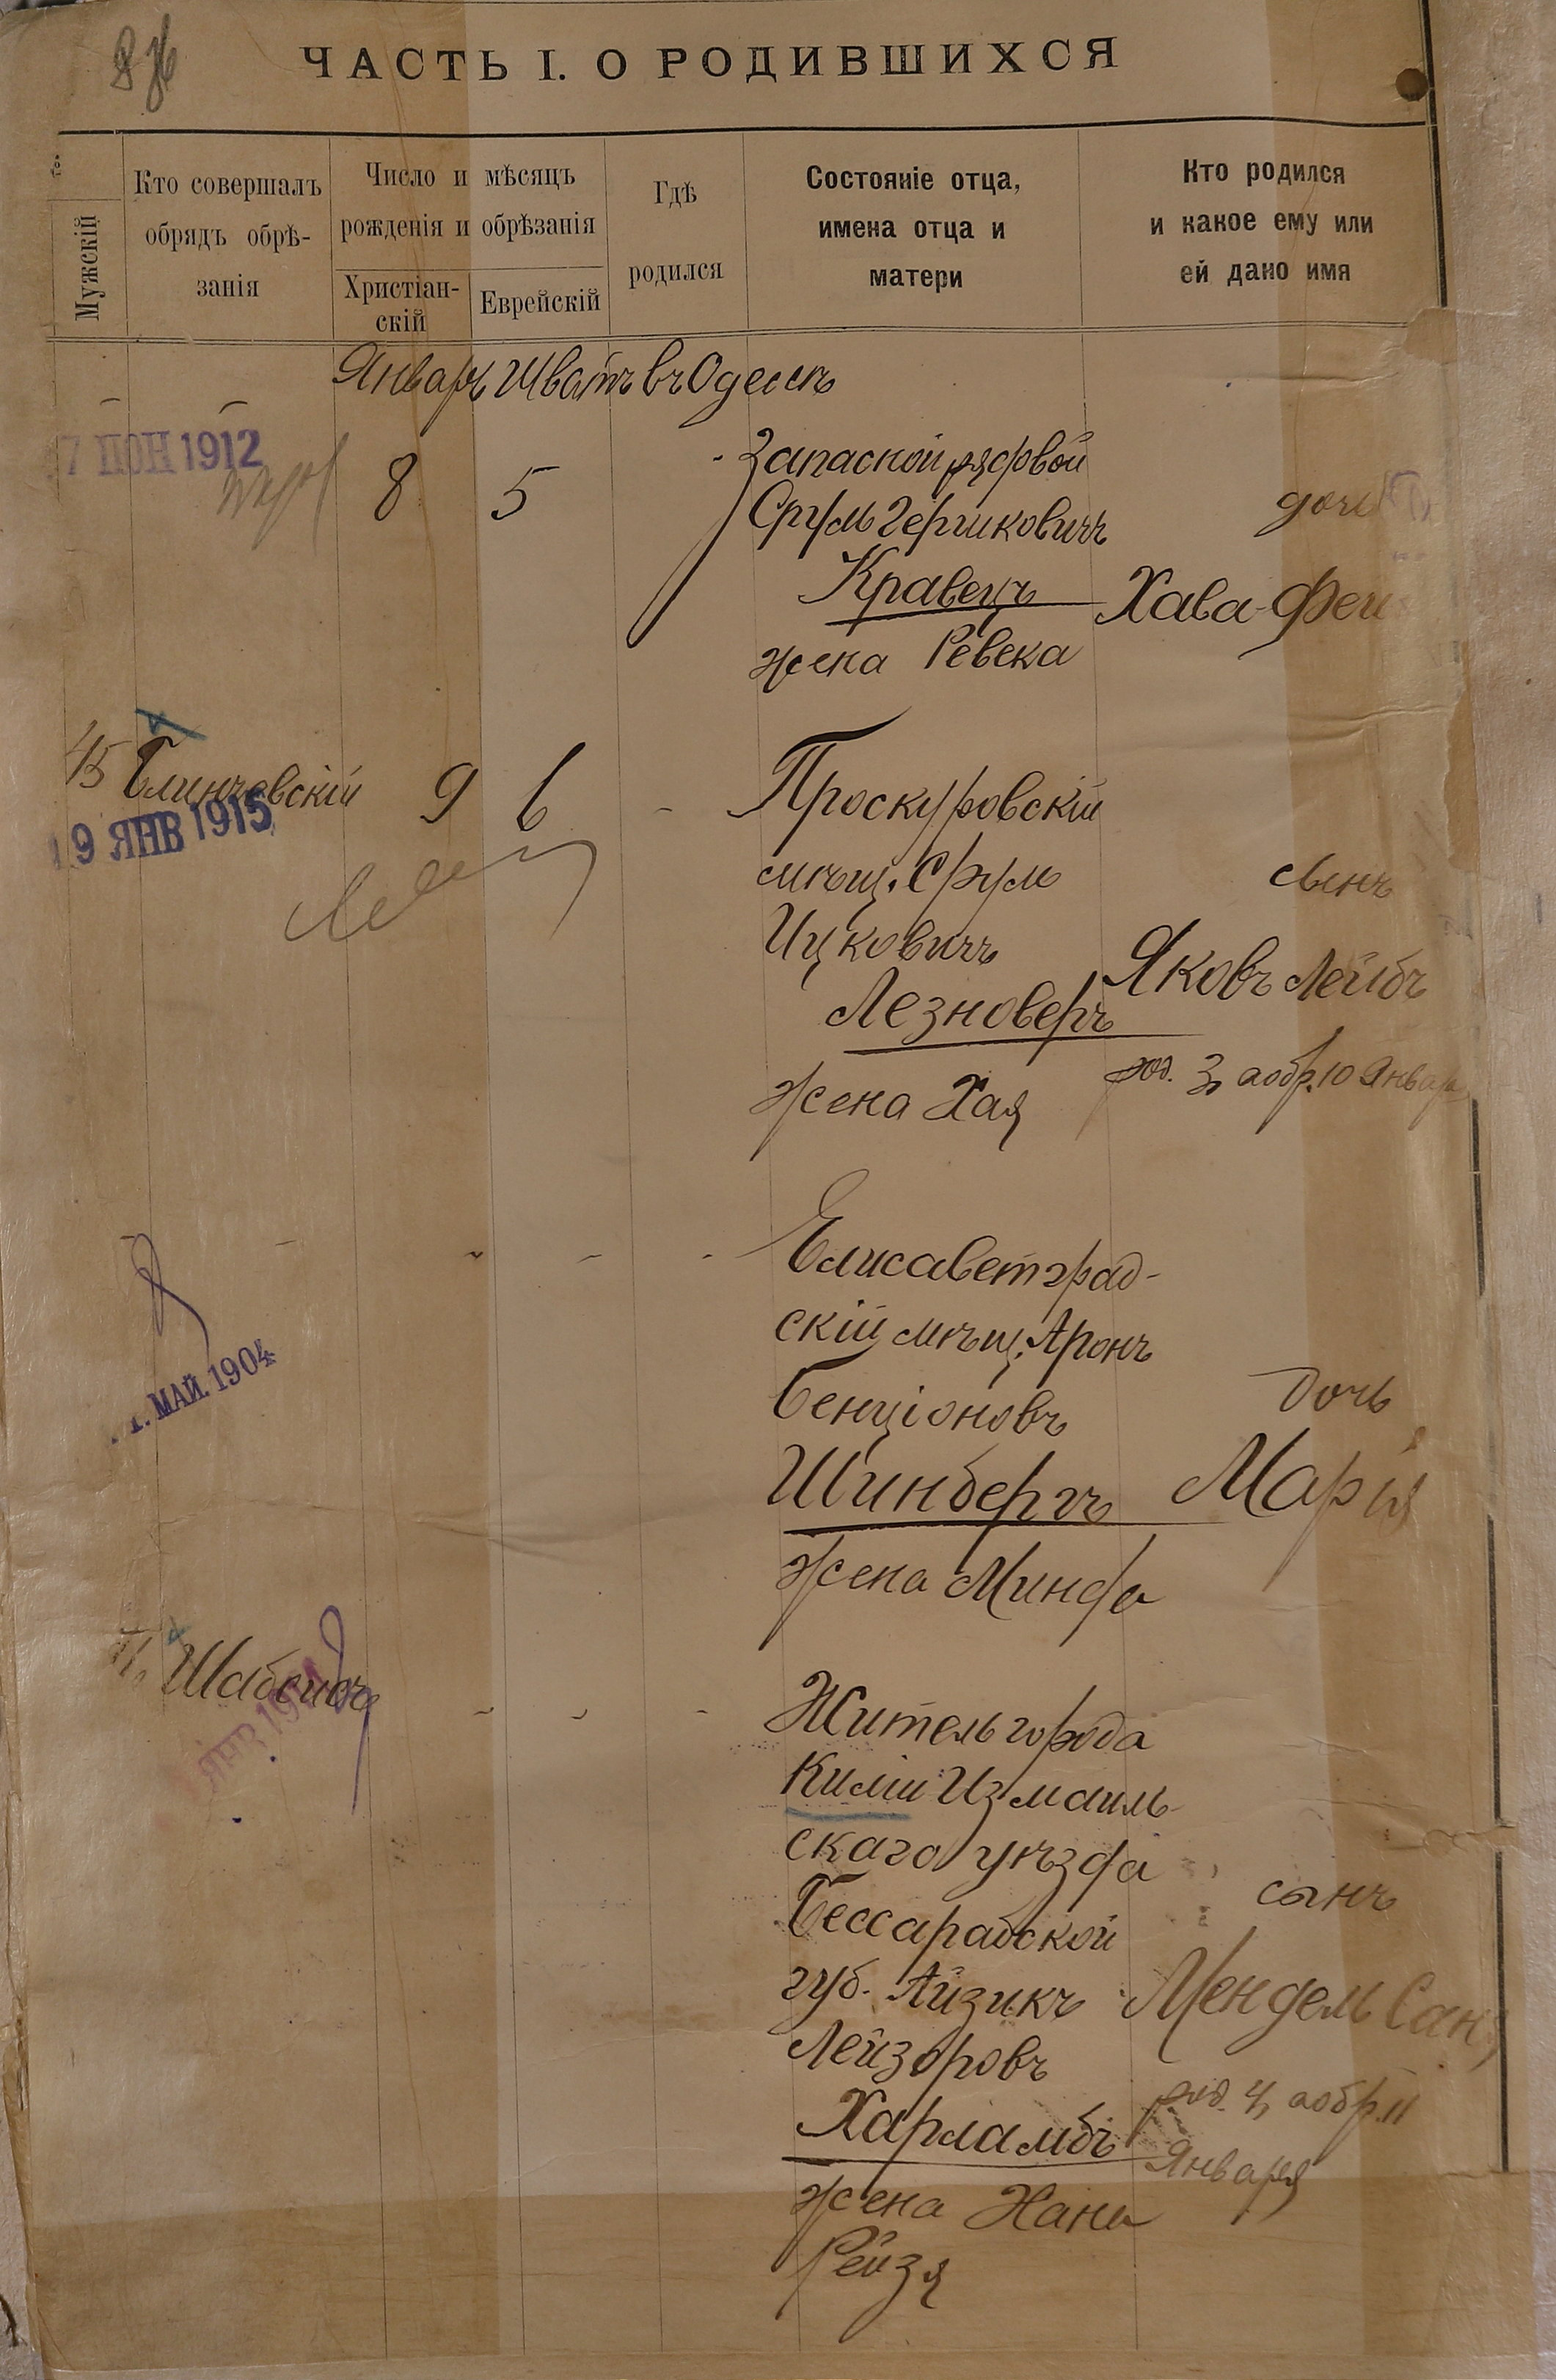 ЧАСТЬ I. О РОДИВШИХСЯ
Мужскій
Кто совершалъ
обрядъ обрѣ-
занія
Число и мѣсяцъ
рожденія и обрѣзанія
Христіан-
скій
Еврейскій
Гдѣ
родился
Состояніе отца,
имена отца и
матери
Кто родился
и какое ему или
ей дано имя
Январь Шватъ въ Одессѣ
1912
8
5
Запасной рядовой
Сруль Гершковичъ
Кравецъ
жена Ревека
дочь
Хава-Фей
45
Блинчевскій
9 ЯНВ 1915
9
6
Проскуровскій
мѣщ. Сруль
Ицковичъ
Лезноверъ
жена Хая
сынъ
Яковъ Лейбъ
род. 3, а обр. 10 Январ
МАЙ. 1904
Елисаветград-
скій мѣщ. Аронъ
Бенціоновъ
Шинбергъ
жена Минда
дочь
Марія
Шабсисъ
Житель города
Киліи Измаиль-
скаго уѣзда
Бессарабской
губ. Айзикъ
Лейзоровъ
Харламбъ
жена Хана
Рейзя
сынъ
Мендель
род. 4, а обр. 11
Января